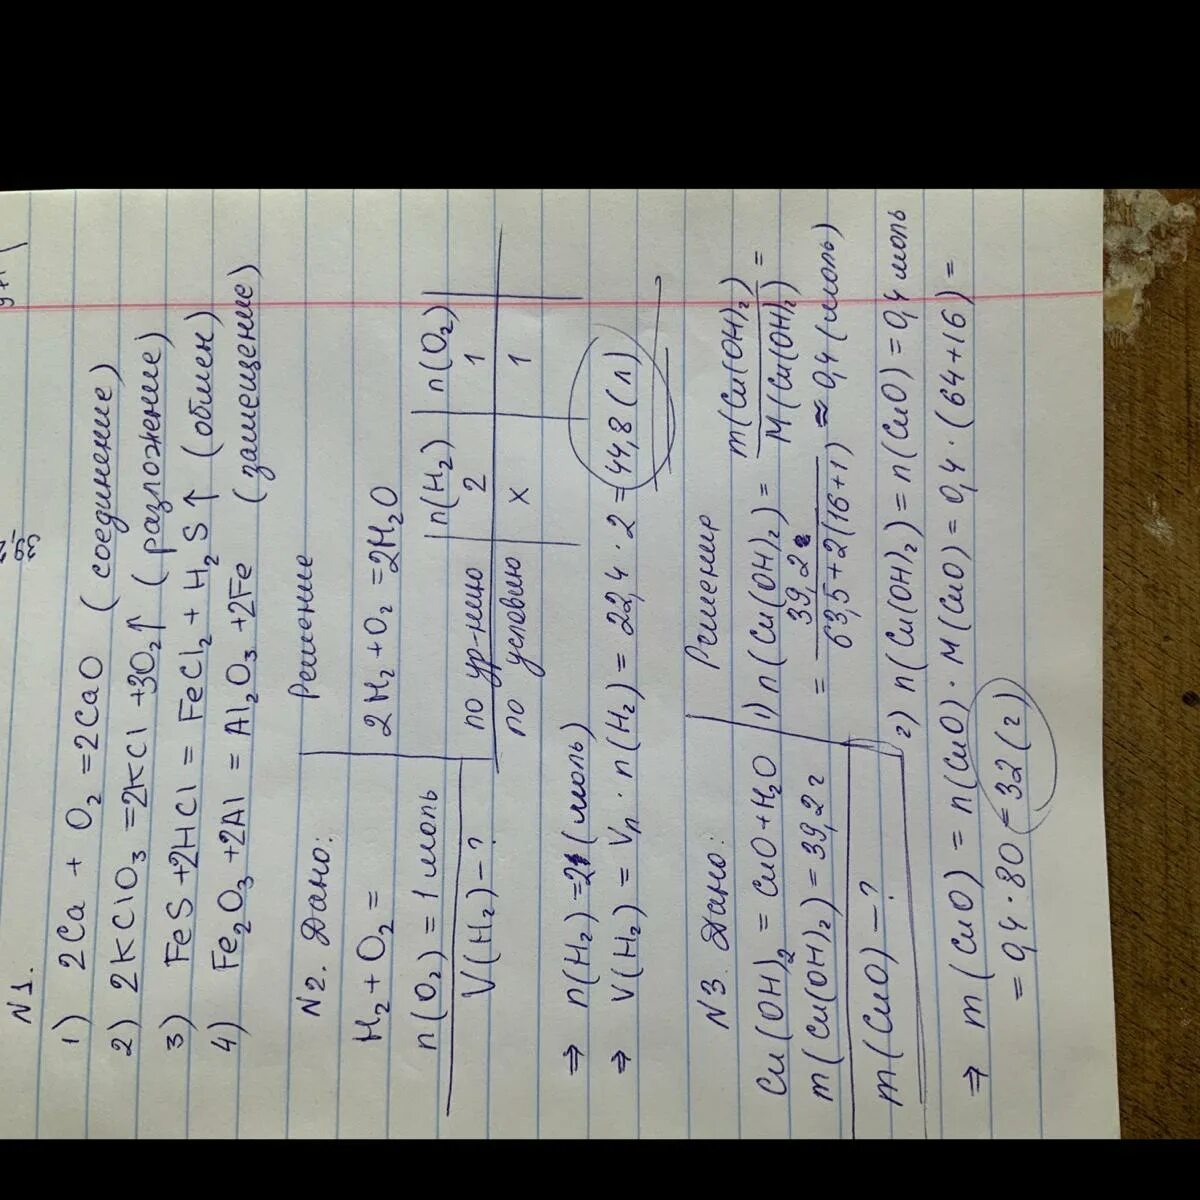 N1.
1) 2Ca + O₂ = 2CaO (соединение)
2) 2KClO₃ = 2KCl + 3O₂↑ (разложение)
3) FeS + 2HCl = FeCl₂ + H₂S↑ (обмен)
4) Fe₂O₃ + 2Al = Al₂O₃ + 2Fe (замещение)
N2. Дано:
H₂ + O₂ =
n(O₂) = 1 моль
V(H₂) – ?
Решение
2H₂ + O₂ = 2H₂O
n(H₂) n(O₂)
по ур-нию 2 1
по условию x 1
⇒ n(H₂) = 2 (моль)
⇒ V(H₂) = Vn · n(H₂) = 22,4 · 2 = 44,8 (л)
N3. Дано:
Cu(OH)₂ = CuO + H₂O
m(Cu(OH)₂) = 39,2 г
m(CuO) – ?
Решение
1) n(Cu(OH)₂) = m(Cu(OH)₂) / M(Cu(OH)₂) =
= 39,2 / 63,5 + 2(16+1) ≈ 0,4 (моль)
2) n(Cu(OH)₂) = n(CuO) = 0,4 моль
⇒ m(CuO) = n(CuO) · M(CuO) = 0,4 · (64+16) =
= 0,4 · 80 = 32 (г)